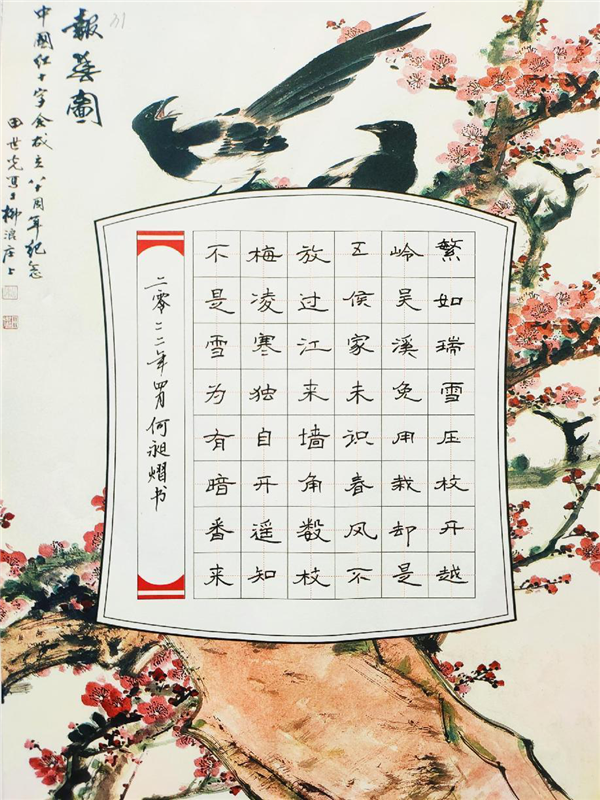 繁如瑞雪压枝开越
岭吴溪免用栽却是
五侯家未识春风不
放过江来墙角数枝
梅凌寒独自开遥知
不是雪为有暗香来
二零二二年四月何昶熠书
報春圖
中國红十字会成立八十周年纪念
田世光寫于柳浪庄上